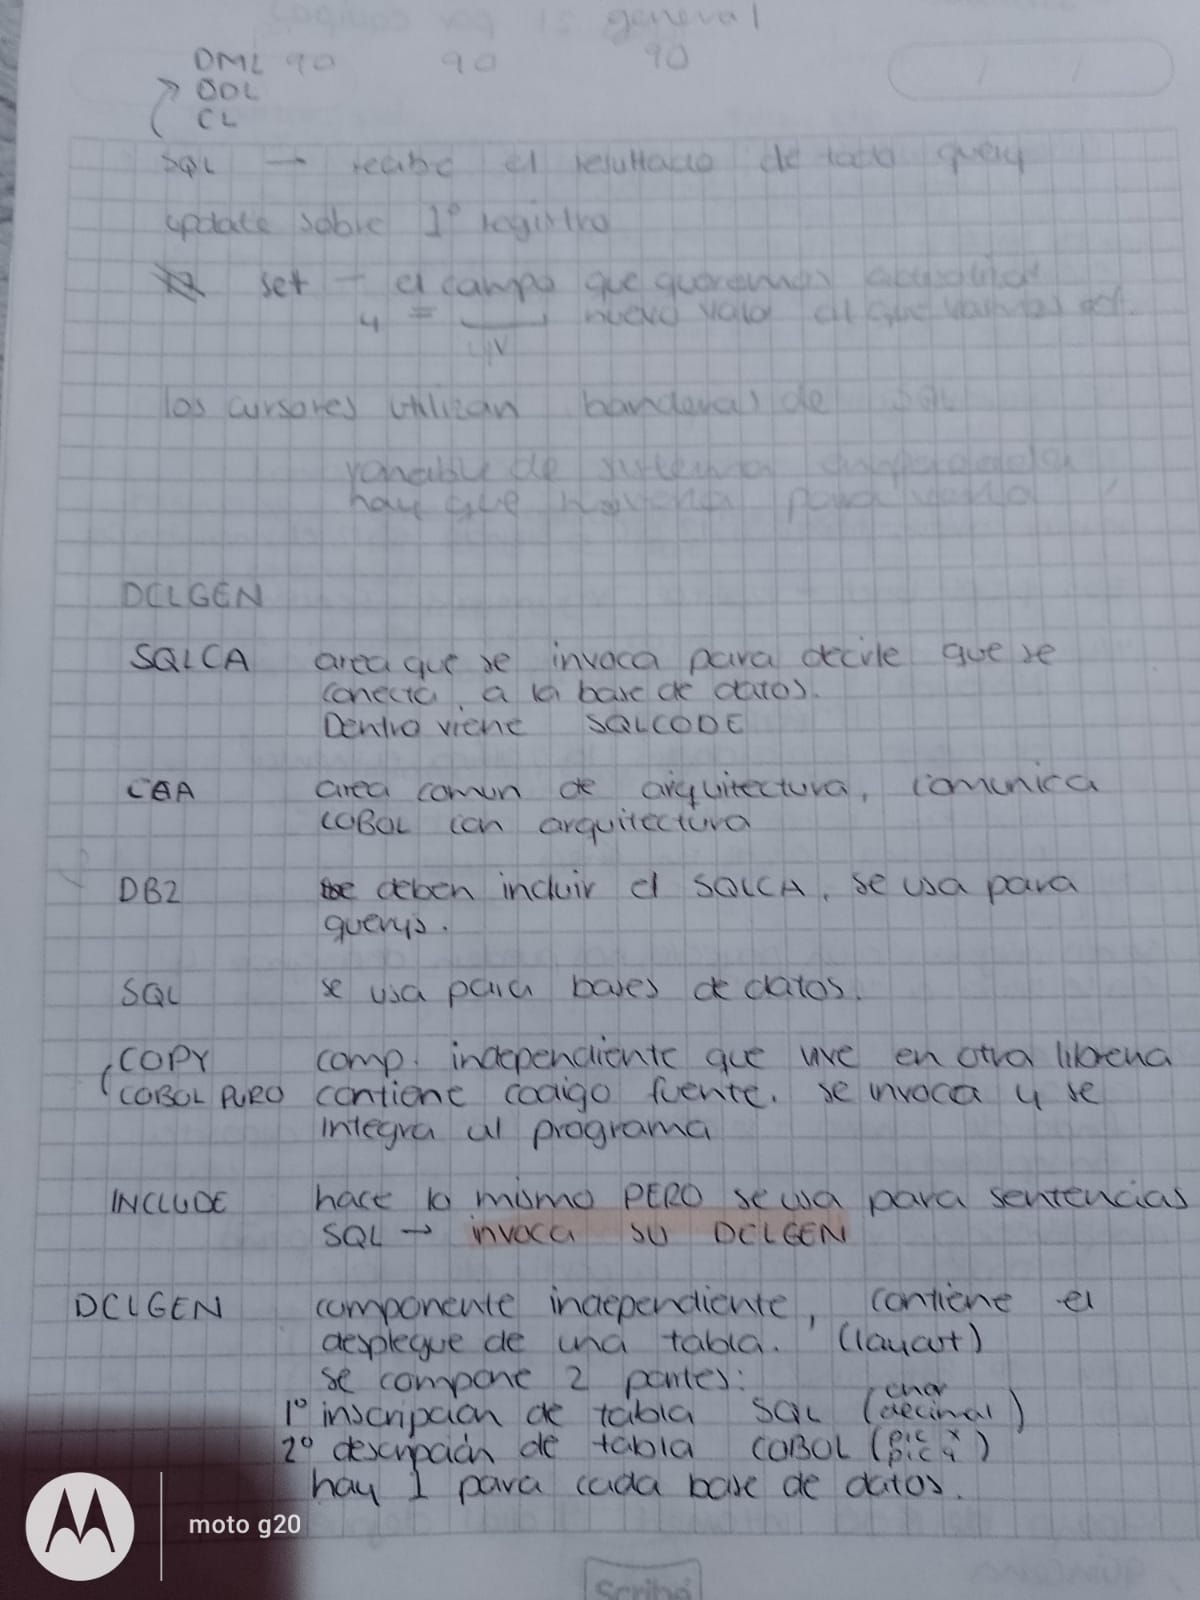 general
DML 90 90 90
DDL
CL
SQL → recibe el resultado de todo query
update sobre 1° registro
set - el campo que queremos actualizar
y = nuevo valor al que vamos
los cursores utilizan banderas de SQL
variable de sistema
hay que para
DCLGEN
SQLCA area que se invoca para decirle que se
conecta a la base de datos.
Dentro viene SQLCODE
CAA area comun de arquitectura, comunica
COBOL con arquitectura
DB2 se deben incluir el SQLCA, se usa para
querys.
SQL se usa para bases de datos.
COPY comp. independiente que vive en otra libreria
COBOL PURO contiene codigo fuente. se invoca y se
integra al programa
INCLUDE hace lo mismo PERO se usa para sentencias
SQL → invoca su DCLGEN
DCLGEN componente independiente, contiene el
despliegue de una tabla. (layout)
se compone 2 partes:
1° inscripcion de tabla SQL (char decimal)
2° descripción de tabla COBOL (pic x pic 9)
hay 1 para cada base de datos.
moto g20
Scribe